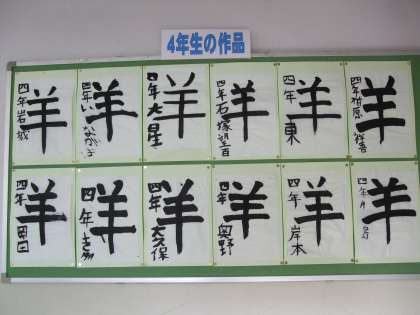 4年生の作品
羊
四年 岩城
羊
四年
羊
四年 大星
羊
四年 石塚
羊
四年 東
羊
四年
羊
四年
羊
四年
羊
四年 大久保
羊
四年 奥野
羊
四年 岸本
羊
四年